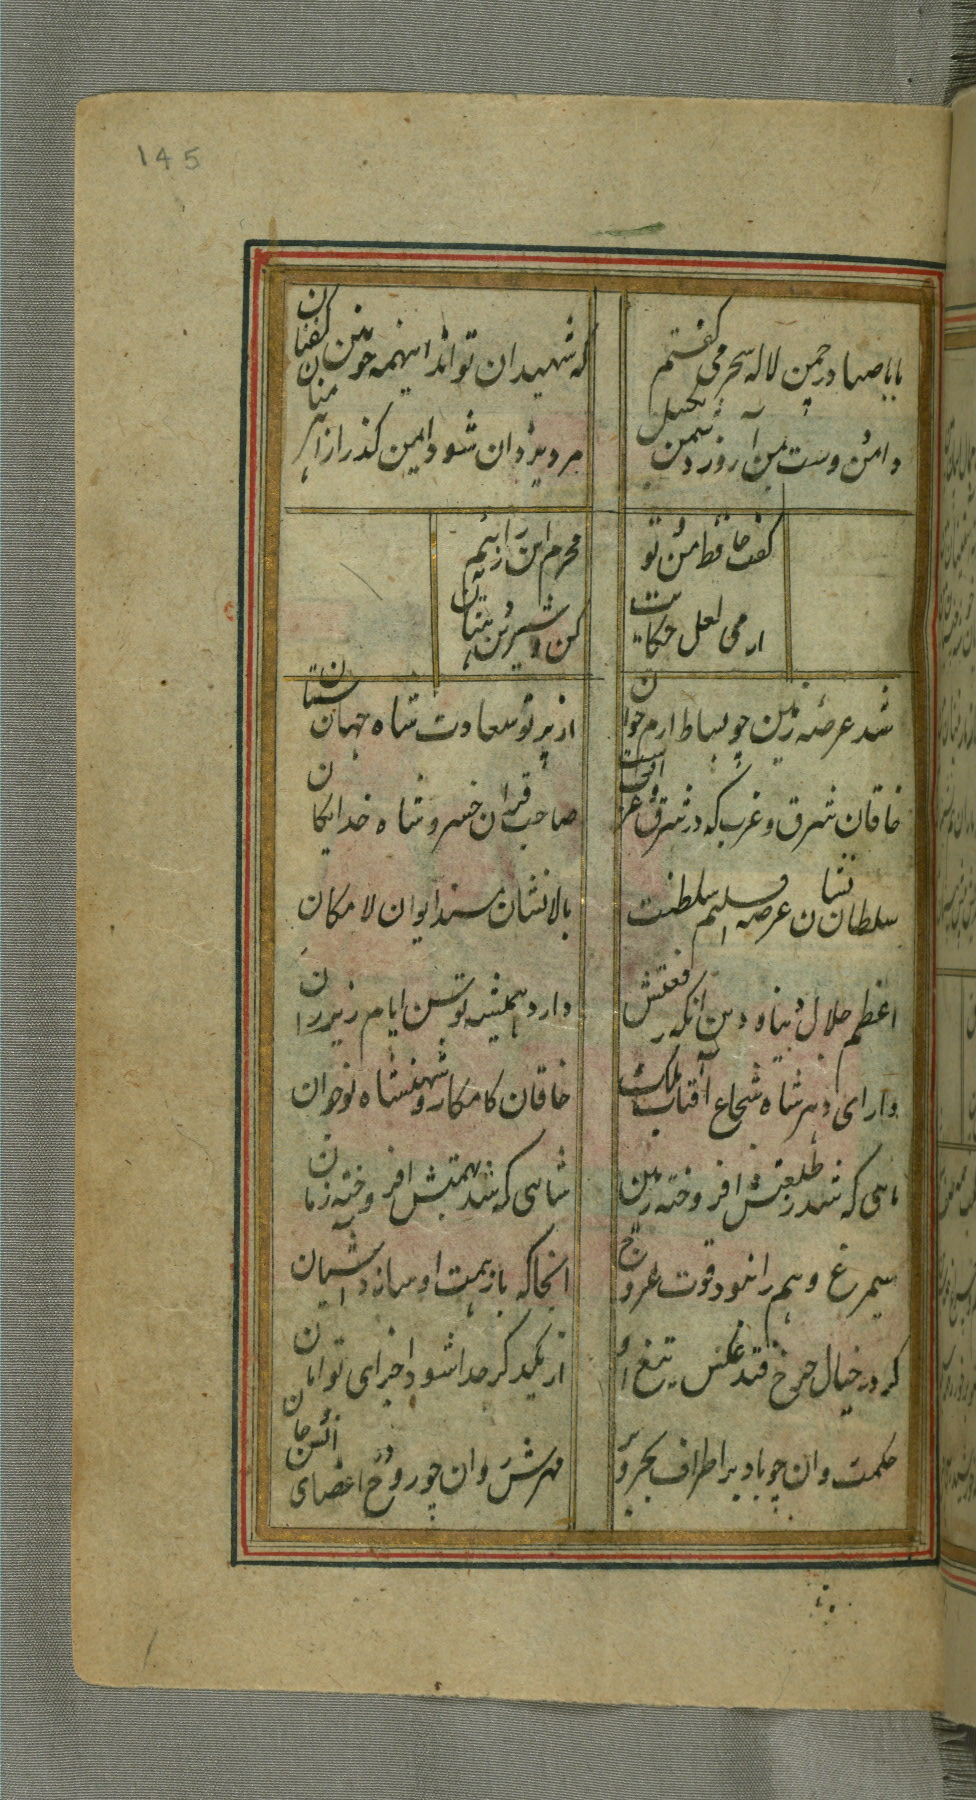 145
با صبا در چمن لاله سحر می گفتم
که شهیدان تواند اینهمه خونین کفنان
دامن دوست بدست آر و ز دشمن بگسل
مرد یزدان شو و ایمن گذر از اهرمنان
گفت حافظ من و تو
محرم این راز نئیم
از می لعل حکایت
کن و شیرین دهنان
شد عرصه زمین چو بساط ارم جوان
از پرتو سعادت شاه جهان ستان
خاقان شرق و غرب که در شرق و غرب اوست
صاحب قران خسرو و شاه خدایگان
سلطان نشان عرصه اقلیم سلطنت
بالانشان مسند ایوان لامکان
اعظم جلال دنیا و دین آنکه رفعتش
دارد همیشه توسن ایام زیر ران
دارای دهر شاه شجاع آفتاب ملک
خاقان کامکار و شهنشاه نوجوان
ماهی که شد ز طلعتش افروخته زمین
شاهی که شد بهمتش افروخته زمان
سیمرغ وهم را نبود قوت عروج
آنجا که باز همت او سازد آشیان
گر در خیال چرخ فتد عکس تیغ او
از یکدگر جدا شود اجزای توامان
حکمت روان چو باد بر اطراف بحر و بر
مهرش روان چو روح در اعضای انس و جان